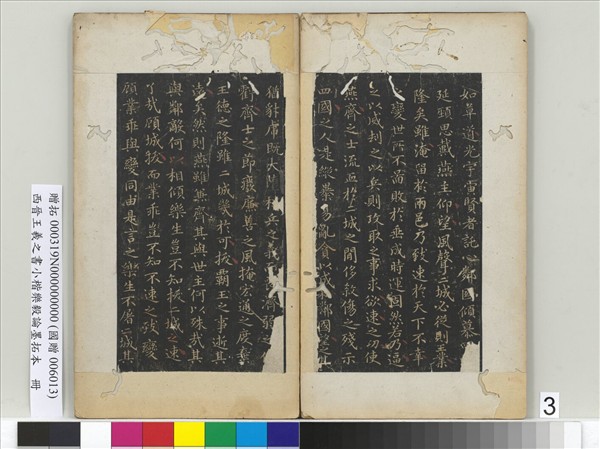 如草道光宇宙賢者託心鄰國傾慕
延頸思戴燕主仰望風聲二城必從則王業
隆矣雖淹留於兩邑乃致速於天下不幸
變世所不啚敗於垂成時運固然若乃逼
之以威劫之以兵則攻取之事求欲速之功使
燕齊之士流血於二城之間侈殺傷之殘示
四國之人是縱暴易亂貪以成私鄰國望之其
猶豺虎既大墮稱兵之義濟弱之
虧齊士之節廢廉善之風掩宏通之度棄
王德之隆雖二城幾於可拔霸王之事逝其
遠矣然則燕雖兼齊其與世主何以殊哉其
與鄰敵何以相傾樂生豈不知拔二城之速
了哉顧城拔而業乖豈不知不速之致變
顧業乖與變同由是言之樂生不屠二城其
贈拓 000319N000000000 (國贈 006013)
西晉王羲之書小楷樂毅論墨拓本 冊
3